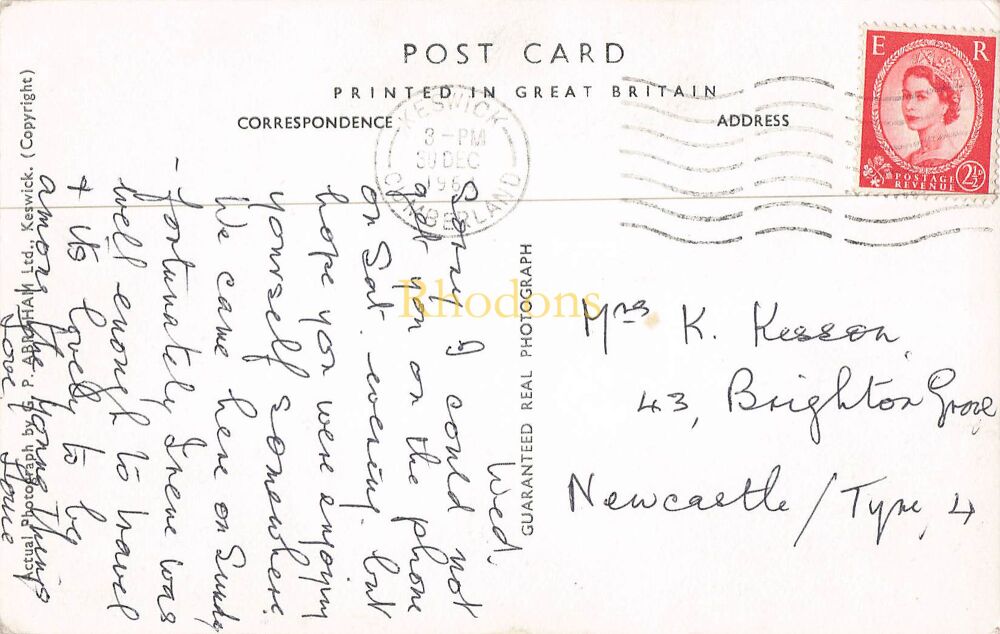 POST CARD
PRINTED IN GREAT BRITAIN
CORRESPONDENCE
ADDRESS
KESWICK
3-PM
30 DEC
196
CUMBERLAND
E R
POSTAGE
REVENUE
2½D
Wed.
Sorry I could not
get you on the phone
on Sat. evening. but
hope you were enjoying
yourself somewhere.
We came here on Sunday
- fortunately Irene was
well enough to travel
& its lovely to be
among the young things
Love
Mrs K. Kesson,
43, Brighton Grove
Newcastle / Tyne, 4
GUARANTEED REAL PHOTOGRAPH
Actual Photograph by G. P. ABRAHAM Ltd., Keswick. (Copyright)
Rhodons